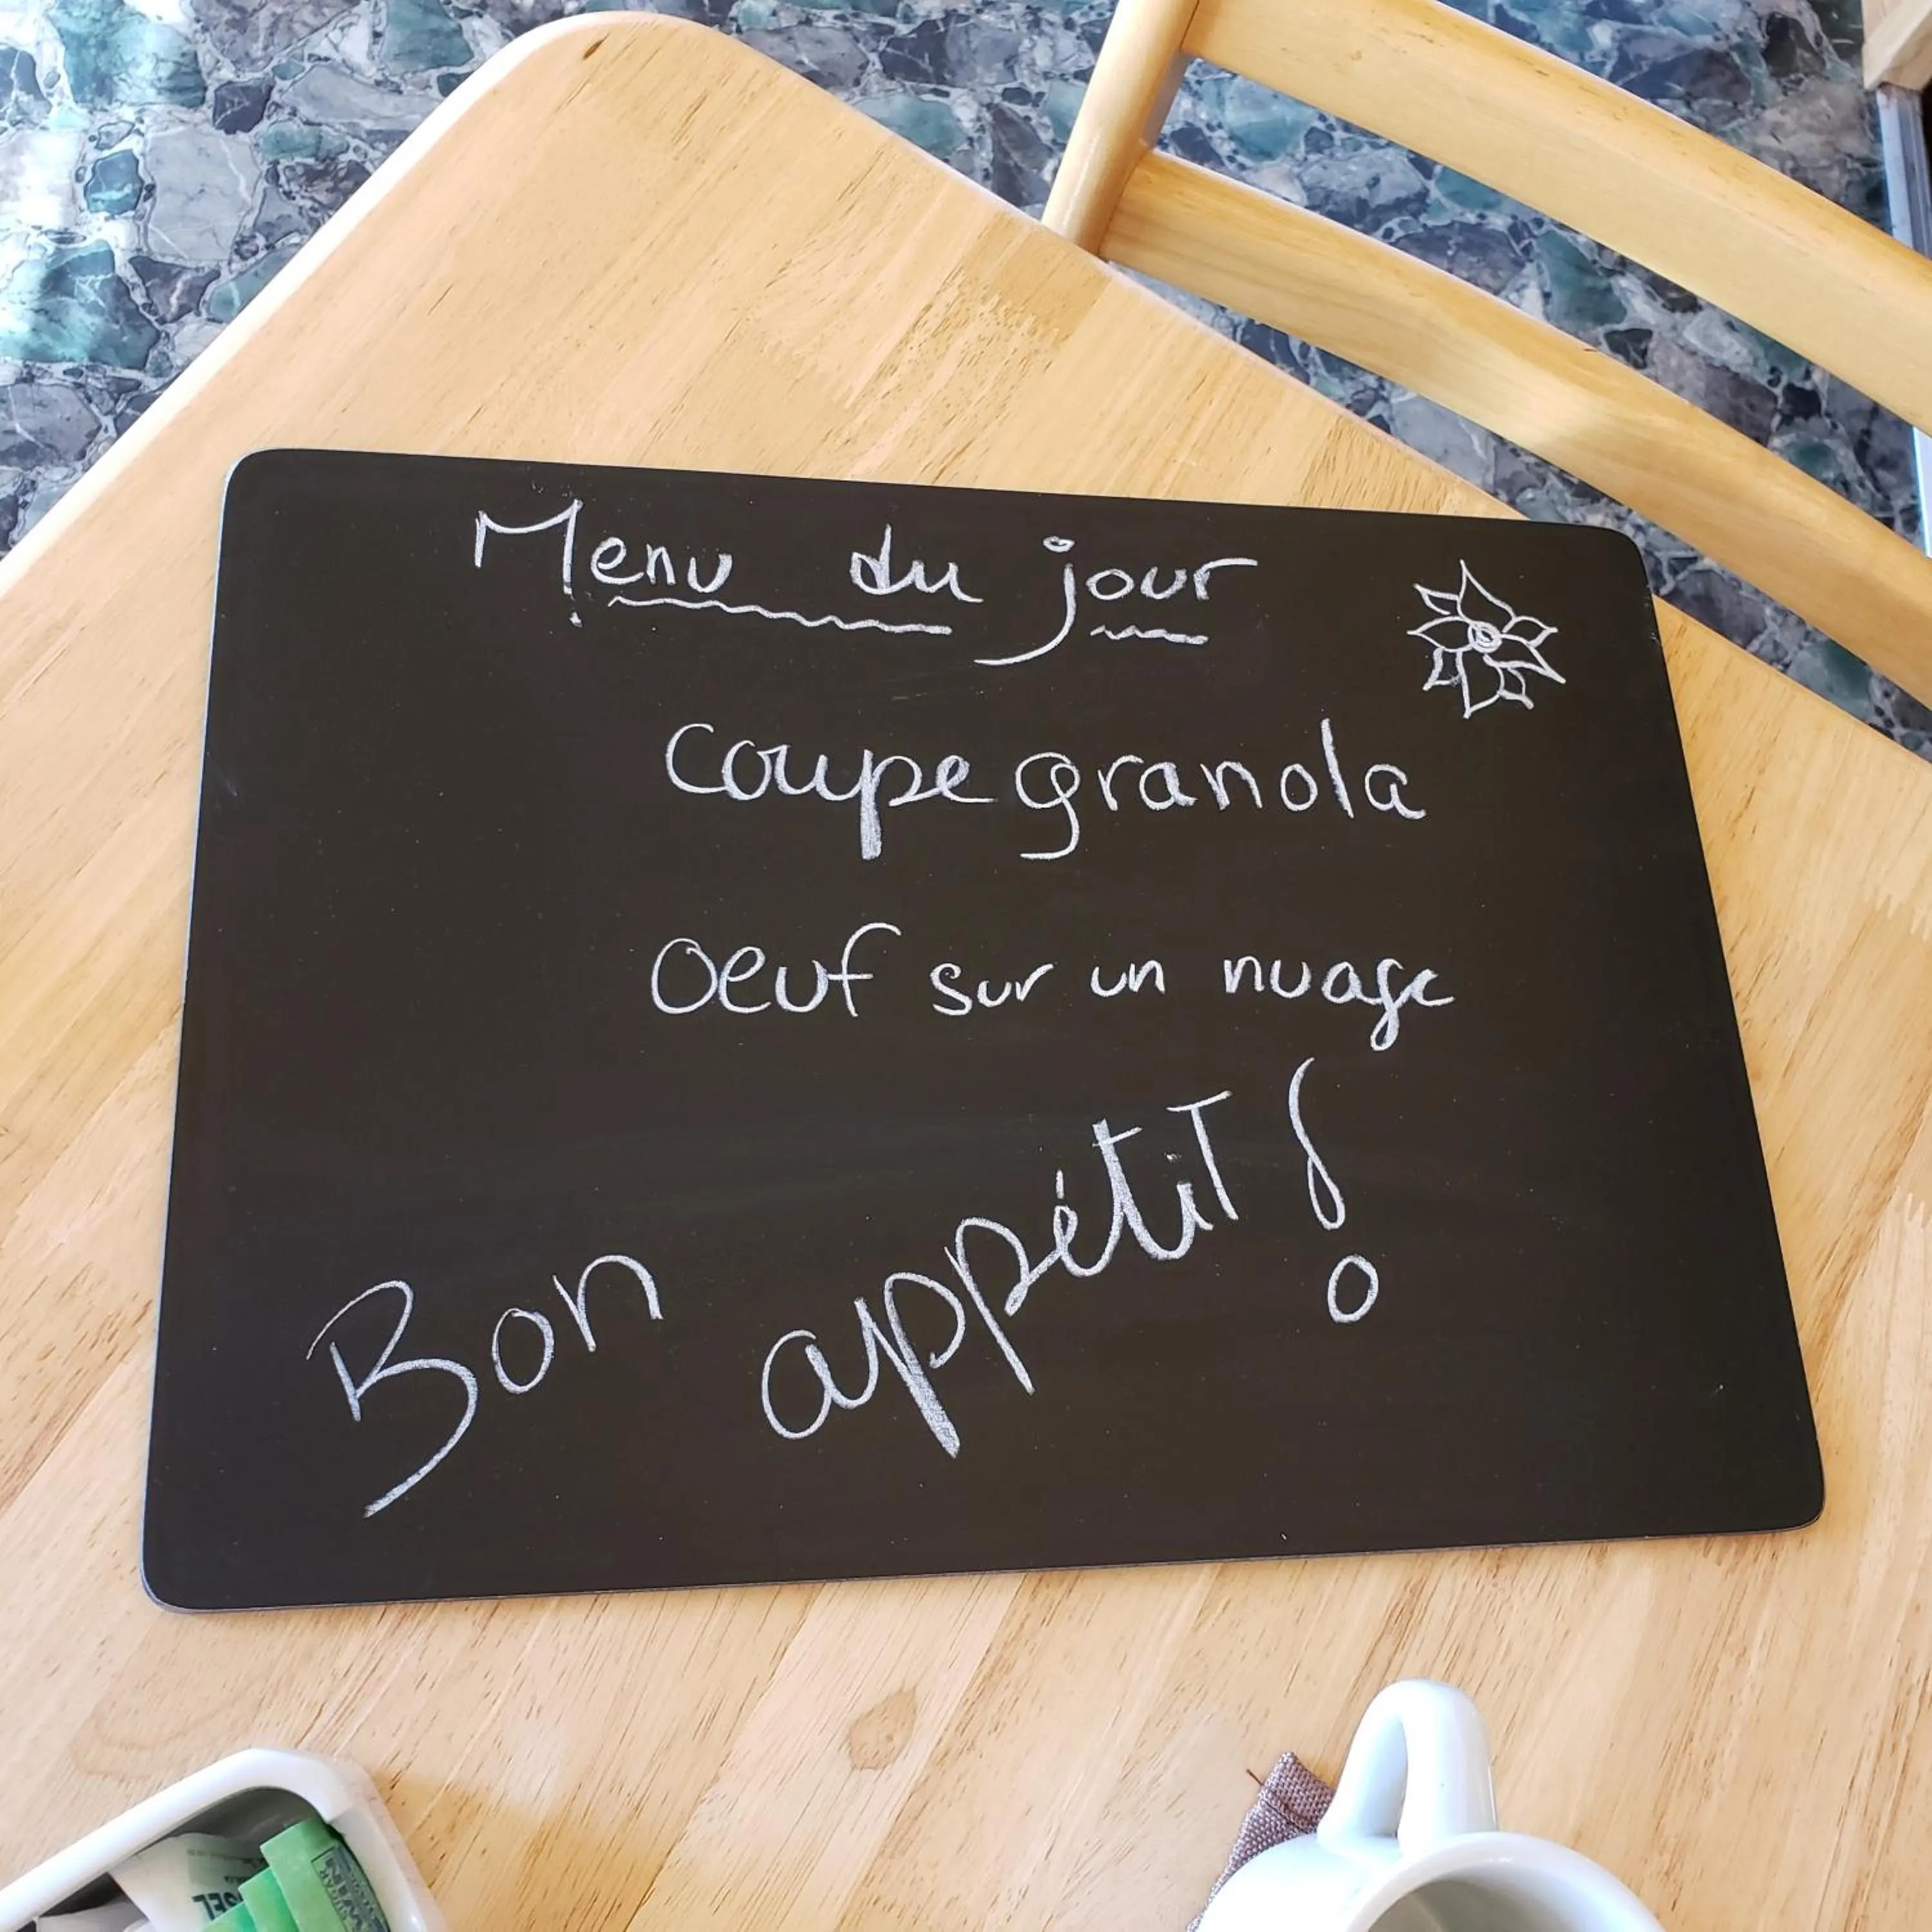 Menu du jour
Coupe granola
Oeuf sur un nuage
Bon appétit !
SEL